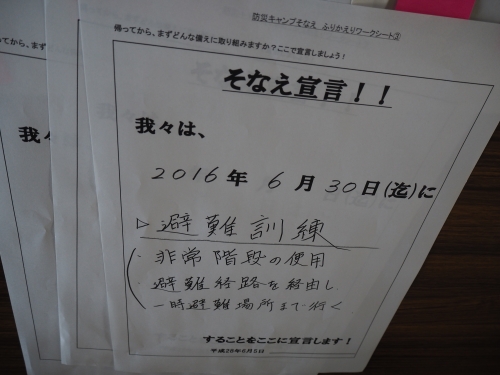 防災キャンプそなえ ふりかえりワークシート③
帰ってから、まずどんな備えに取り組みますか？ここで宣言しましょう！
そなえ宣言！！
我々は、
2016年 6月 30日(迄)に
▷避難訓練
・非常階段の使用
・避難経路を経由し
一時避難場所まで行く
することをここに宣言します！
平成28年6月5日
帰ってから、ま
我々